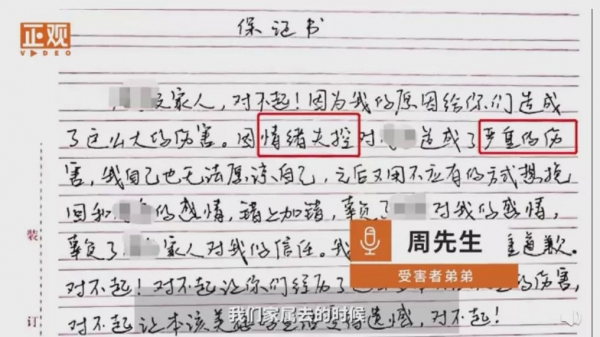 正观
VIDEO
保证书
家人,对不起!因为我的原因给你们造成
了这么大的伤害。因情绪失控对 造成了严重的伤
害,我自己也无法原谅自己,之后又用不应有的方式想挽
回和 的感情,错上加错,辜负了 对我的感情,
辜负了 家人对我的信任。我 道歉。
对不起!对不起让你们经历了 的伤害,
对不起让本该美 遗憾,对不起!
装
订
周先生
受害者弟弟
我们家属去的时候